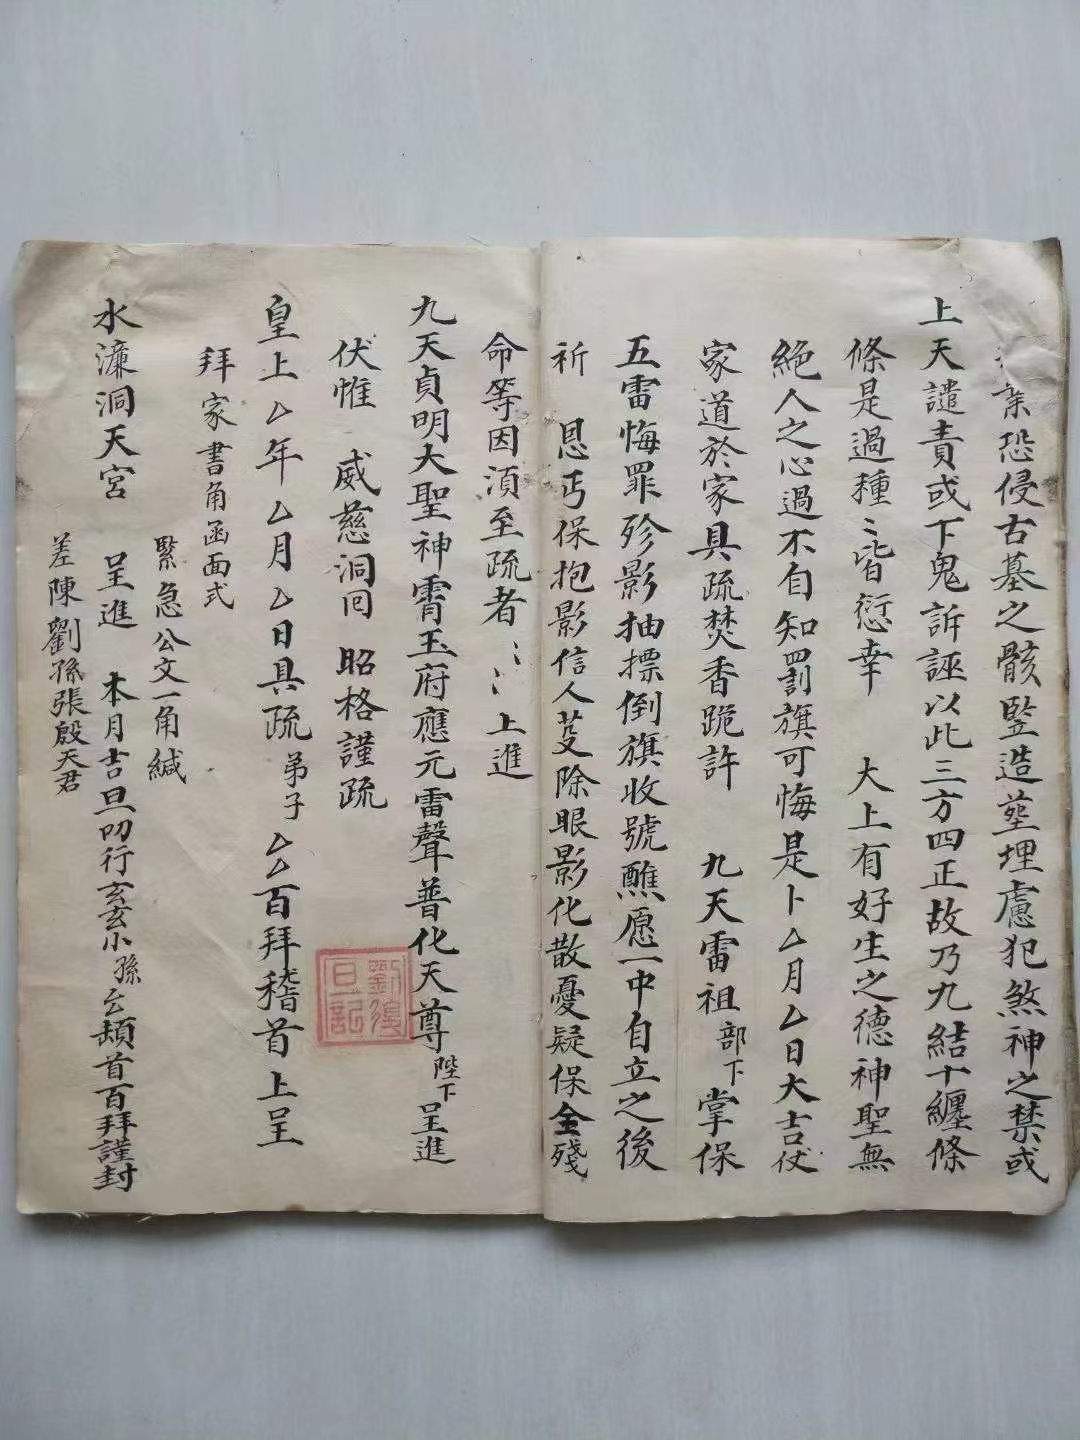 業恐侵古墓之骸竪造塟埋慮犯煞神之禁或
上天譴責或下鬼訴誣以此三方四正故乃九結十纏條
條是過種〻皆愆幸　大上有好生之德神聖無
絕人之心過不自知罰旗可悔是卜厶月厶日大吉伏
家道於家具疏焚香跪許　九天雷祖部下掌保
五雷悔罪殄影抽摽倒旗收號醮愿一中自立之後
祈　恩丐保抱影信人芟除眼影化散憂疑保全殘
命等因湏至疏者〻〻上進
九天貞明大聖神霄玉府應元雷聲普化天尊陛下呈進
伏惟　威慈洞回　昭格謹疏
皇上厶年厶月厶日具疏弟子厶厶百拜稽首上呈
拜家書角函面式
緊急公文一角緘
水濂洞天宮　呈進　本月吉旦叨行玄玄小孫厶頓首百拜謹封
差陳劉孫張殷天君
劉復旦記